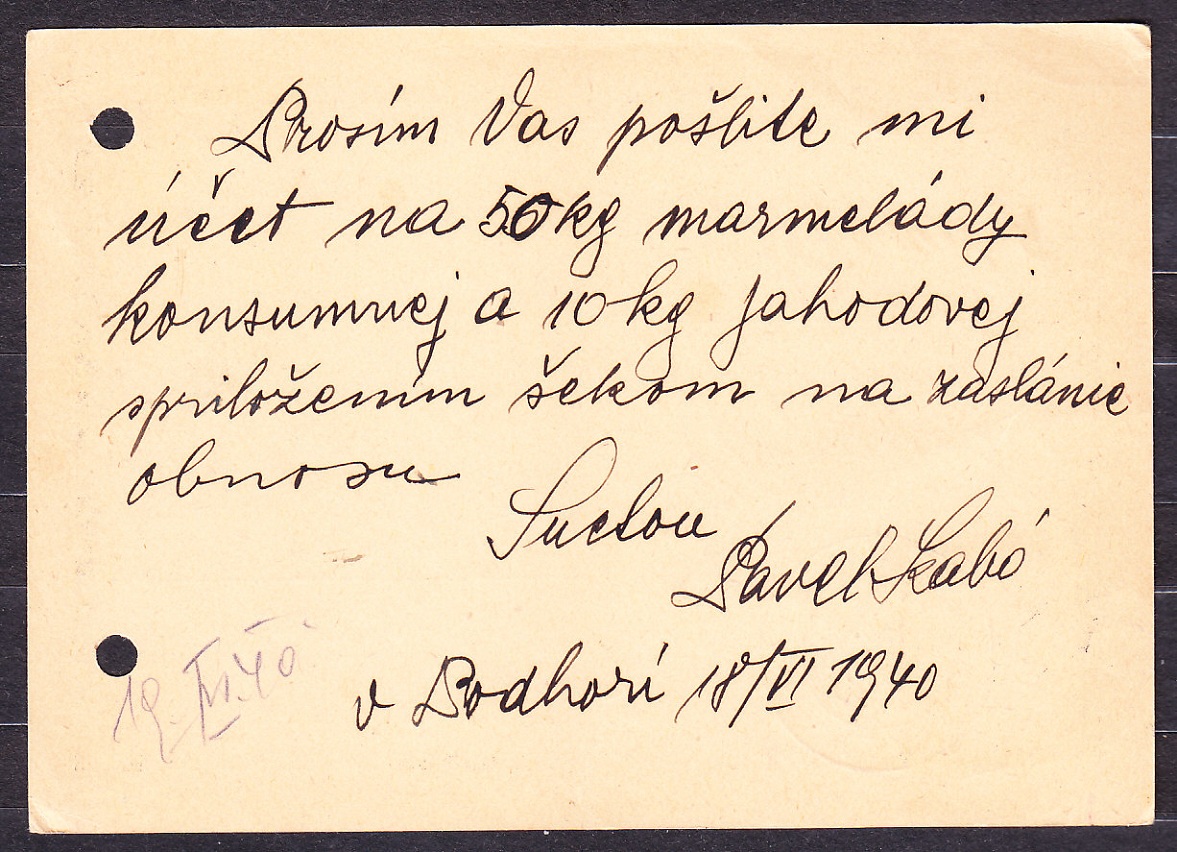 Prosím Vas pošlite mi
účet na 50kg marmelády
konsumnej a 10kg jahodovej
spriloženim šekom na zaslánie
obnosu
S uctou
Pavel Szabó
v Podhorí 18/VI 1940
19. VI. 40